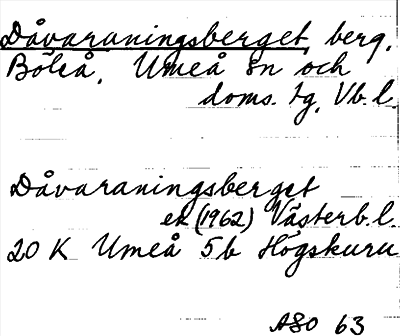 Dåvaraningsberget, berg,
Böleå, Umeå sn och
doms. tg, Vb. l.
Dåvaraningsberget
ek (1962) Västerb. l.
20 K Umeå 5b Högskuru
ASO 63